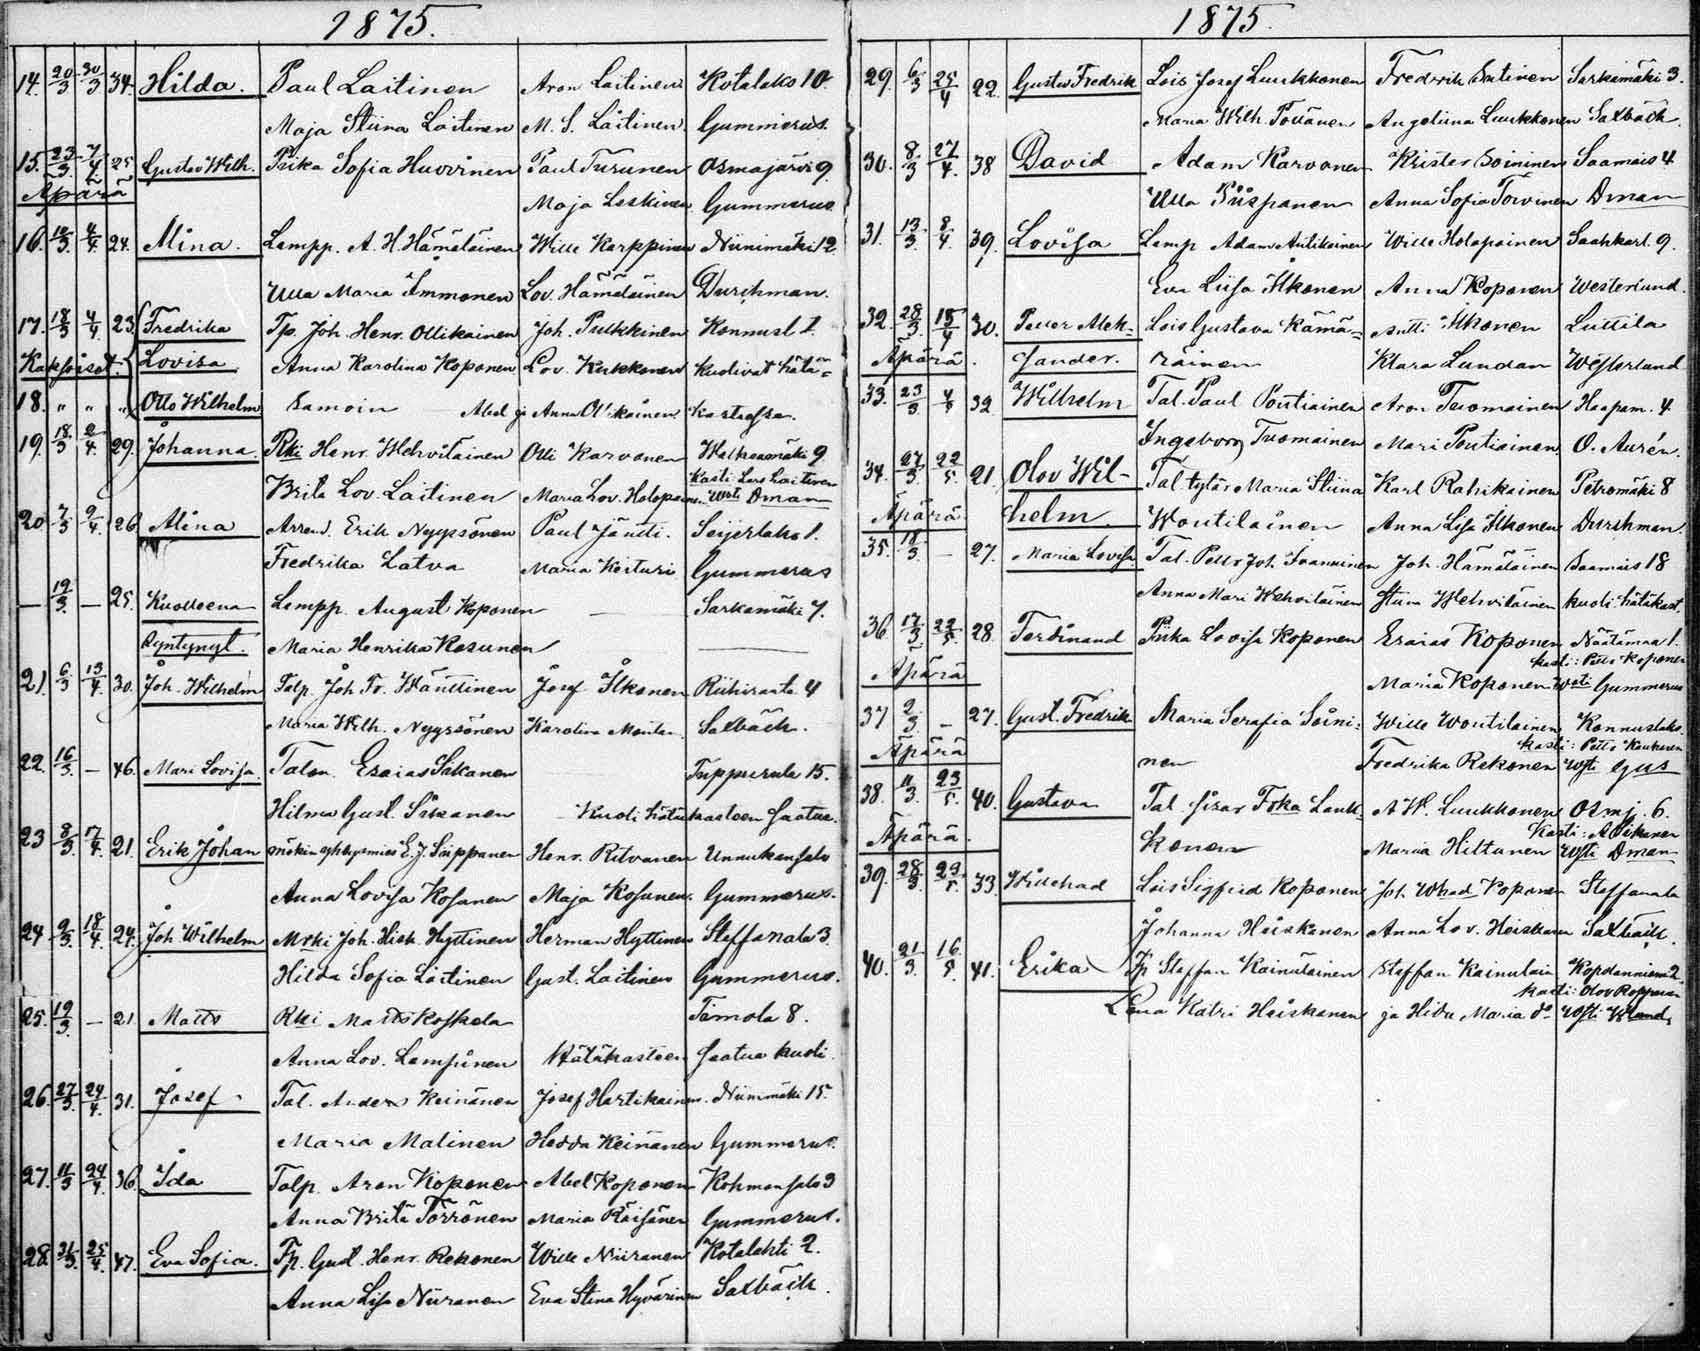 1875.
14. 20/3 30/3 34. Hilda. Paul Laitinen Aron Laitinen Kotalaks 10.
Maja Stiina Laitinen M. S. Laitinen. Gummerus.
15. 23/3 7/4 25 Gustav Wilh. Piika Sofia Huovinen Paul Turunen Osmajärvi 9.
Äpärä Maja Leskinen Gummerus
16. 4/4 24. Miina. Lampp. A. H. Hämäläinen Wille Karppinen Niinimäki 12
Ulla Maria Immonen Lov. Hämäläinen Durchman.
17. 18/3 4/4 23. Fredrika Tp. Joh. Henr. Ollikainen Joh. Pulkkinen Konnusl. 1
Kaksoiset. Lovisa. Anna Karolina Koponen Lov. Kukkonen Kudivat hätä=
18. " " " Otto Wilhelm Samoin Abel ja Anna Ol'kainen kastessa.
19. 18/3 2/4 29. Johanna. Rki Henr. Wehviläinen Olli Karvonen Wehmasmäki 9
Brita Lov. Laitinen Maria Lov. Holopainen Kasti Lars Laitinen Wsti Dman
20 7/3 9/4 26. Alina Arren. Erik Nyyssönen Paul Jäntti. Seijerlaks 1.
Fredrika Latva Maria Keituri Gummerus
— 19/3 — 25. Kuolleena Lampp. August Koponen Sarkamäki 7.
Syntynyt. Maria Henrika Kosunen
21. 6/3 13/4 30. Joh. Wilhelm Talp. Joh. Fr. Wänttinen Josef Ilkonen Riihiranta 4
Maria Wilh. Nyyssönen Karolina Salbäck.
22. 16/3 — 46. Mari Lovisa. Talon. Esaias Sikanen Tuppurala 15.
Hilma Gust. Sikanen Kuoli hätäkasteen saatua.
23 8/3 17/4 21. Erik Johan mökin yhtymies E. J. Siippanen Henr. Ritvanen Unnukansalo
Anna Lovisa Kosunen Maja Kosunen. Gummerus.
24 9/3 18/4 24. Joh. Wilhelm Mrki Joh. Hisk. Hyttinen Herman Hyttinen Steffanala 3.
Hilda Sofia Laitinen Gust. Laitinen Gummerus.
25. 19/3 — 21 Matts Rki Matts Koskela Timola 8.
Anna Lov. Lampinen Hätäkasteen saatua kuoli
26. 27/3. 24/4. 31. Josef Tal. Anders Keinänen Josef Hartikainen. Niinimäki 15.
Maria Malinen Hedda Keinänen Gummerus.
27. 11/3 24/4. 36 Ida Talp. Aron Koponen Abel Koponen Kohmansalo 3
Anna Brita Törrönen Maria Räisänen Gummerus.
28. 31/3. 25/4. 47. Eva Sofia. Tp. Gust. Henr. Rekonen Wille Niiranen Kotalahti 2.
Anna Lisa Niiranen Eva Stina Hyvärinen Salbäck.
1875.
29. 6/3 25/4 22. Gustav Fredrik Lois Josef Luukkonen Fredrik Sutinen Sarkamäki 3.
Maria Wilh. Pöllänen Angeliina Luukkonen Salbäck.
30. 8/3 27/4. 38 David Adam Karvonen Krister Soininen Saamais 4
Ulla Piispanen Anna Sofia Toivinen Dman
31. 13/3 8/4 39. Lovisa Lamp Adam Antikainen Wille Holopainen Saahkarl. 9.
Eva Liisa Ilkonen Anna Koponen Westerlund.
32. 28/3. 18/4 30. Petter Alek- Lois Gustava Kämä= Antti Ilkonen Luttila
Äpärä. sander. räinen Klara Lundan Westerlund
33. 23/3 32 Wilhelm Tal. Paul Poutiainen Aron Tuomainen Haapam. 4
Ingeborg Tuomainen Mari Poutiainen O. Aurén.
34. 27/3. 22/5. 21. Olov Wil- Tal. tytär Maria Stiina Karl Rahikainen Petromäki 8
Äpärä helm. Woutilainen Anna Lisa Ilkonen Durchman.
35. 18/3 — 27. Maria Lovisa Tal. Petter Joh. Joh. Hämäläinen Saamais 18
Anna Mari Wehviläinen Stina Wehviläinen kuoli hätäkast.
36 17/3 22/5. 28. Ferdinand Piika Lovisa Koponen Esaias Koponen Näätänm 1.
Äpärä kasti: Petter Koponen
Maria Koponen Wsti Gummerus
37 2/3 — 27. Gust. Fredrik Maria Serafia Soini= Wille Woutilainen Konnuslaks.
Äpärä kasti: Petter
nen Fredrika Rekonen Wsti Gus
38. 11/3. 23/5. 40. Gustava Tal. sisar Frka Luuk- A W. Luukkonen Osmj. 6.
Äpärä. Kasti: A
konen Maria Hiltunen Wsti Dman
39. 28/3. 23/5. 33 Willehad Lois Sigfrid Koponen Joh. Whad Koponen Steffanala
Johanna Heiskanen Anna Lov. Heiskanen Salbäck.
40. 21/3. 16/5 41. Erika Tp Staffan Kainulainen Staffan Kainulain Kopolanniemi 2.
kasti: Olov Kopponen
Lena Katri Heiskanen ja Hida Maria do Wsti Wlund.